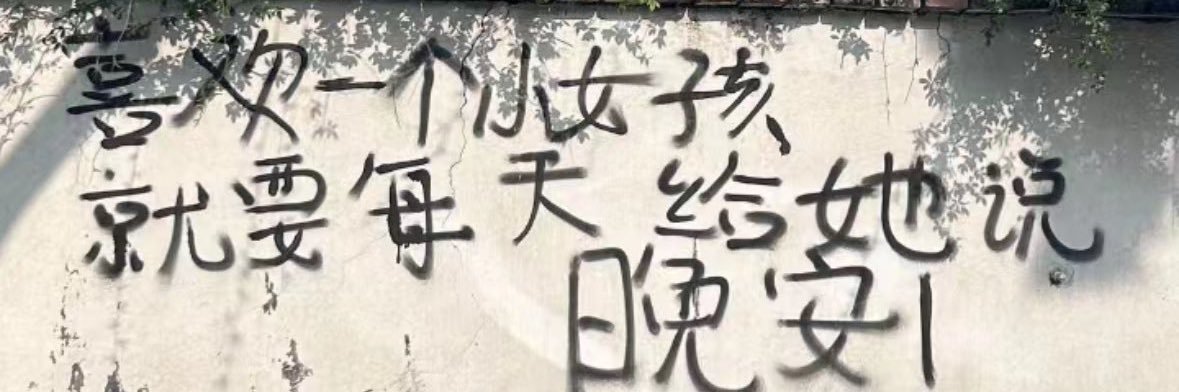 喜欢一个小女孩
就要每天给她说
晚安!